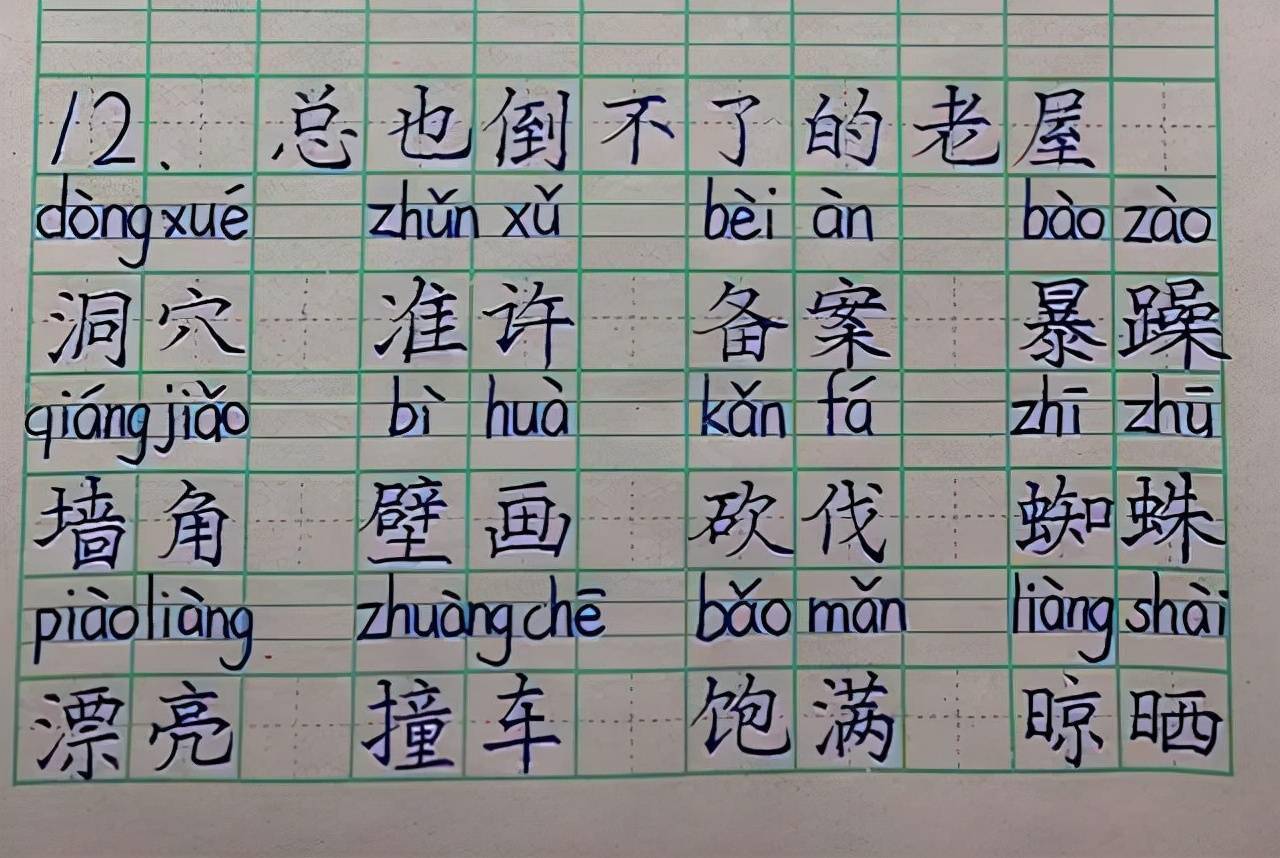 12. 总也倒不了的老屋
dòng xué zhǔn xǔ bèi àn bào zào
洞穴 准许 备案 暴躁
qiáng jiǎo bì huà kǎn fá zhī zhū
墙角 壁画 砍伐 蜘蛛
piào liàng zhuàng chē bǎo mǎn liàng shài
漂亮 撞车 饱满 晾晒